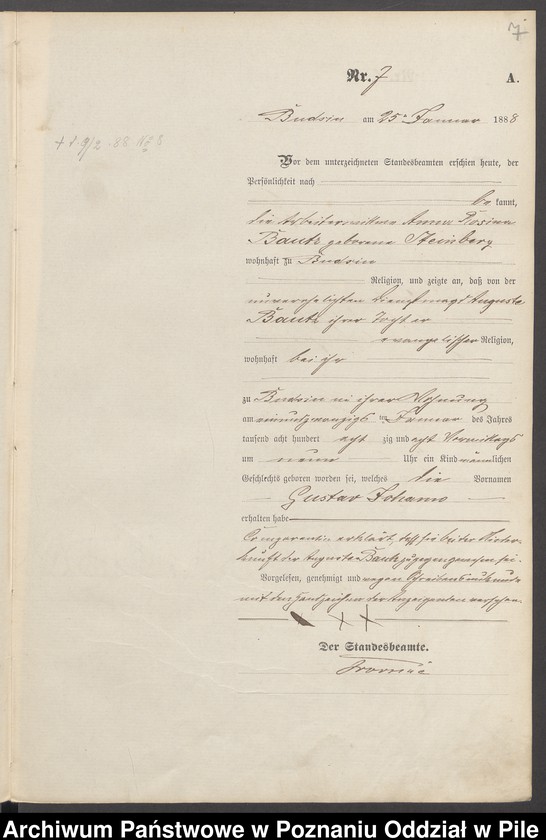 7
Nr. 7 A.
Budsin am 25ten Januar 1888
+ d. 9/2 88 Nr 8
Vor dem unterzeichneten Standesbeamten erschien heute, der
Persönlichkeit nach
be kannt,
die Arbeiterwittwe Anna Rosina
Bautz geborene Steinberg
wohnhaft zu Budsin
Religion, und zeigte an, daß von der
unverehelichten Dienstmagd Augusta
Bautz ihrer Tochter
evangelischer Religion,
wohnhaft bei ihr
zu Budsin in ihrer Wohnung
am einundzwanzigs ten Januar des Jahres
tausend acht hundert acht zig und acht Vormittags
um neun Uhr ein Kind männlichen
Geschlechts geboren worden sei, welches die Vornamen
Gustav Johann
erhalten habe
Comparentin erklärt, daß sie bei der Nieder-
kunft der Augusta Bautz zugegen gewesen sei.
Vorgelesen, genehmigt und wegen Schreibensunkunde
mit den Handzeichen der Anzeigenden versehen.
Der Standesbeamte.